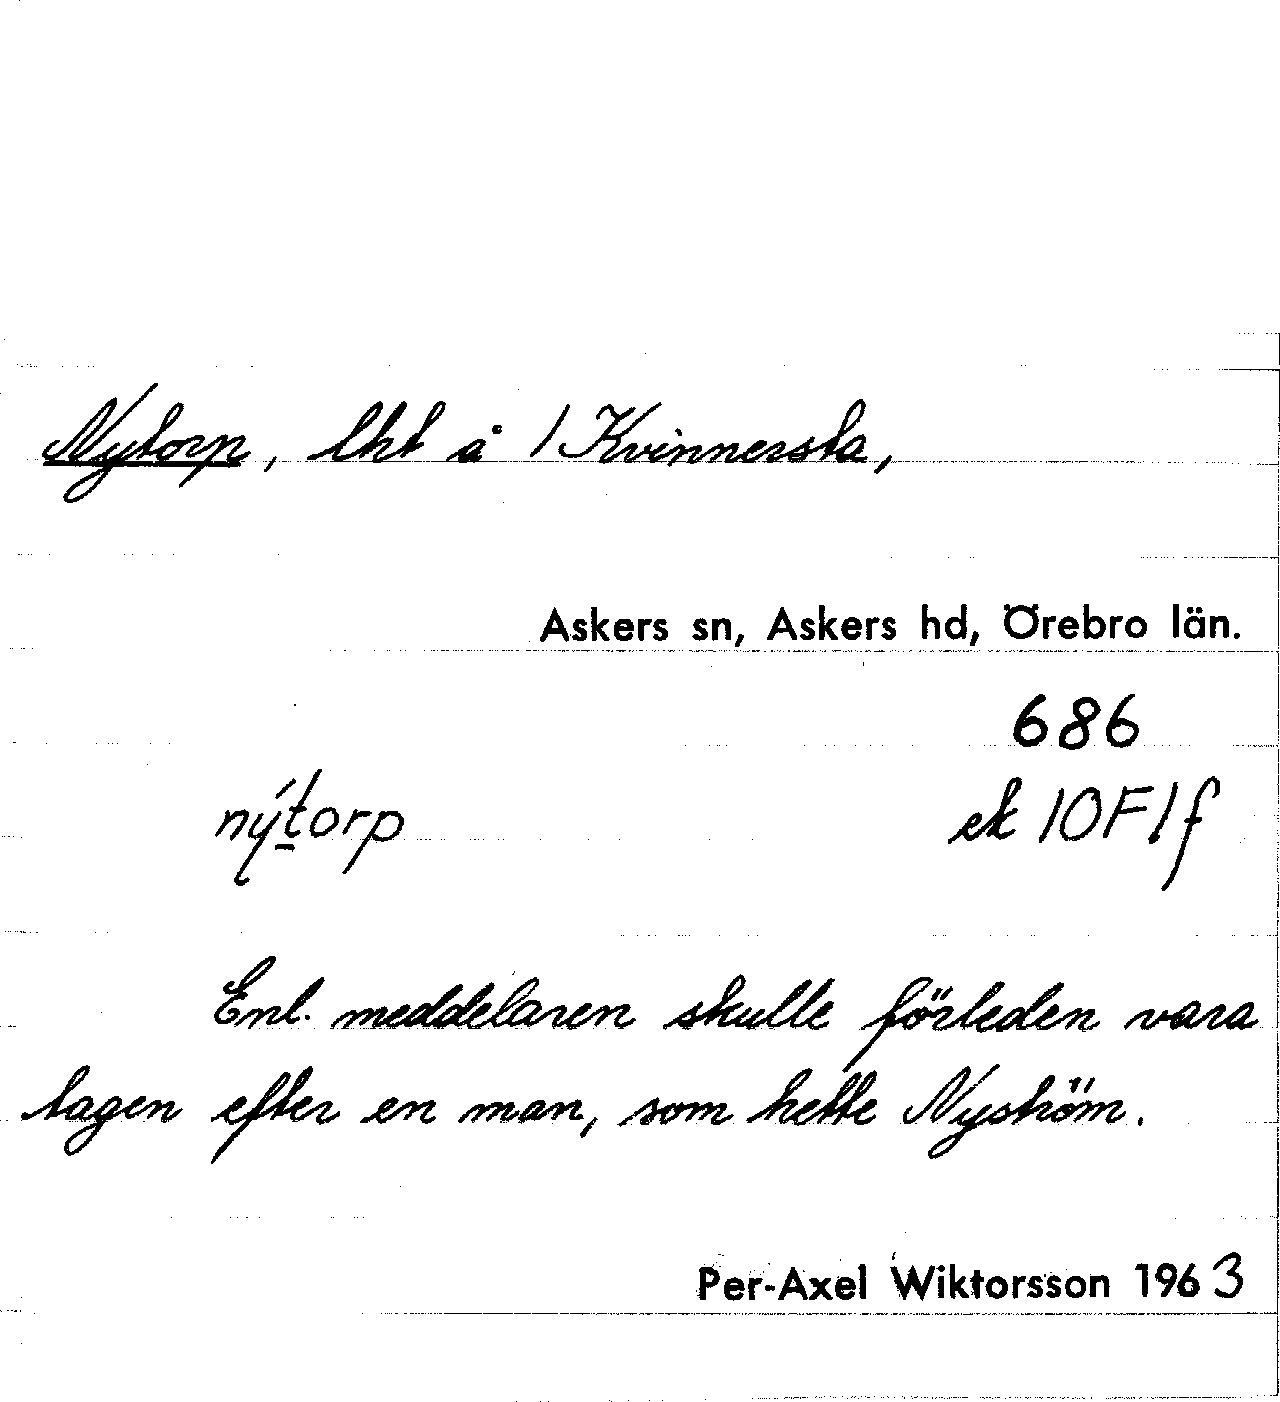 Nytorp, lht å 1 Kvinnersta,
Askers sn, Askers hd, Örebro län.
686
nýt̲orp ek 10F1f
Enl. meddelaren skulle förleden vara
tagen efter en man, som hette Nyström.
Per-Axel Wiktorsson 1963